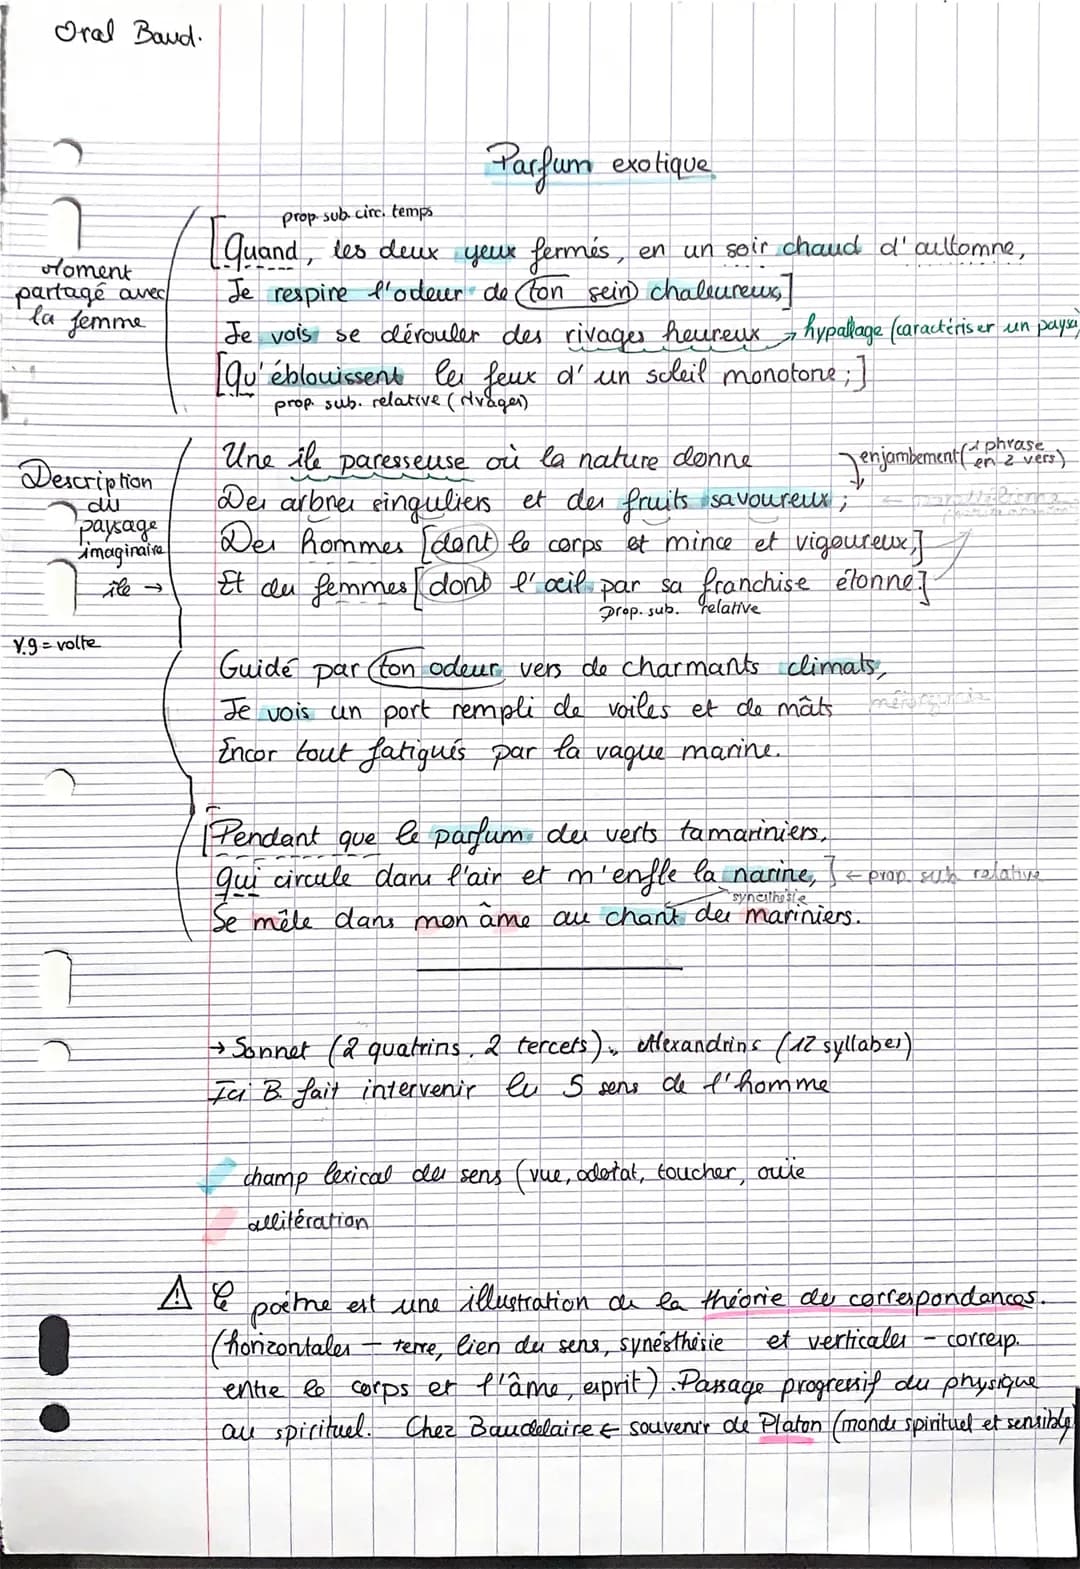 Oral Baud.
Parfum exotique
prop. sub. circ. temps
[Quand, les deux yeux fermés, en un soir chaud d'automne,
Moment partagé avec la femme
Je respire l'odeur de ton sein chaleureux,]
Je vois se dérouler des rivages heureux → hypallage (caractériser un paysa
[Qu'éblouissent les feux d'un soleil monotone ;]
prop. sub. relative (rivages)
Description du paysage imaginaire
île →
Une île paresseuse où la nature donne
enjambement (1 phrase en 2 vers)
Des arbres singuliers et des fruits savoureux ;
Des hommes [dont le corps est mince et vigoureux,]
Et des femmes [dont l'œil par sa franchise étonne.]
prop. sub. relative
V.9 = volte
Guidé par ton odeur vers de charmants climats,
Je vois un port rempli de voiles et de mâts
Encor tout fatigués par la vague marine.
[Pendant que le parfum des verts tamariniers,
Qui circule dans l'air et m'enfle la narine,] ← prop. sub relative
synesthésie
Se mêle dans mon âme au chant des mariniers.
→ Sonnet (2 quatrins, 2 tercets), Alexandrins (12 syllabes)
Ici B. fait intervenir les 5 sens de l'homme
champ lexical des sens (vue, odorat, toucher, ouïe
allitération
⚠ Le poème est une illustration de la théorie des correspondances.
(horizontales – terre, lien des sens, synésthésie et verticales – corresp.
entre le corps et l'âme, esprit). Passage progressif du physique
au spirituel. Chez Baudelaire ← souvenir de Platon (monde spirituel et sensible)